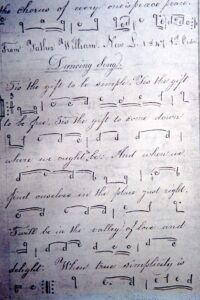 the chorus of every
From Father William. New L.
Dancing Song.
Tis the gift to be simple. Tis the gift
to be free. Tis the gift to come down
where we ought be. And when we
find ourselves in the place just right,
Twill be in the valley of love and
delight. When true simplicity is